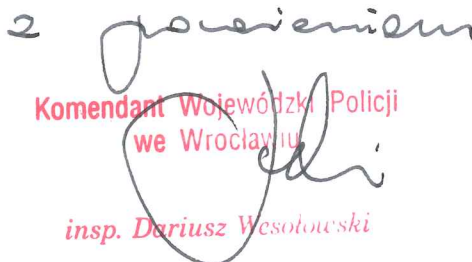 z poważaniem
Komendant Wojewódzki Policji
we Wrocławiu
insp. Dariusz Wesołowski